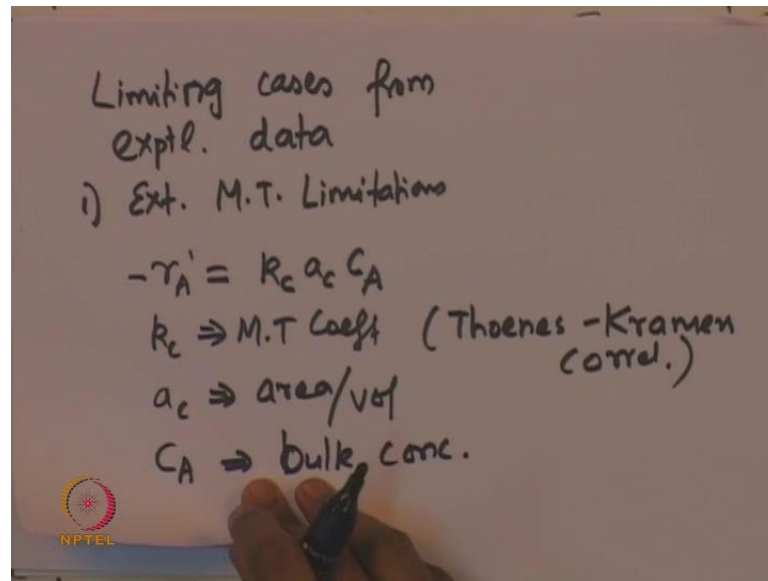 Limiting cases from
exptl. data
1) Ext. M.T. Limitations
-r_A' = k_c a_c C_A
k_c ⇒ M.T Coeft (Thoenes - Kramen
correl.)
a_c ⇒ area/vol
C_A ⇒ bulk conc.
NPTEL